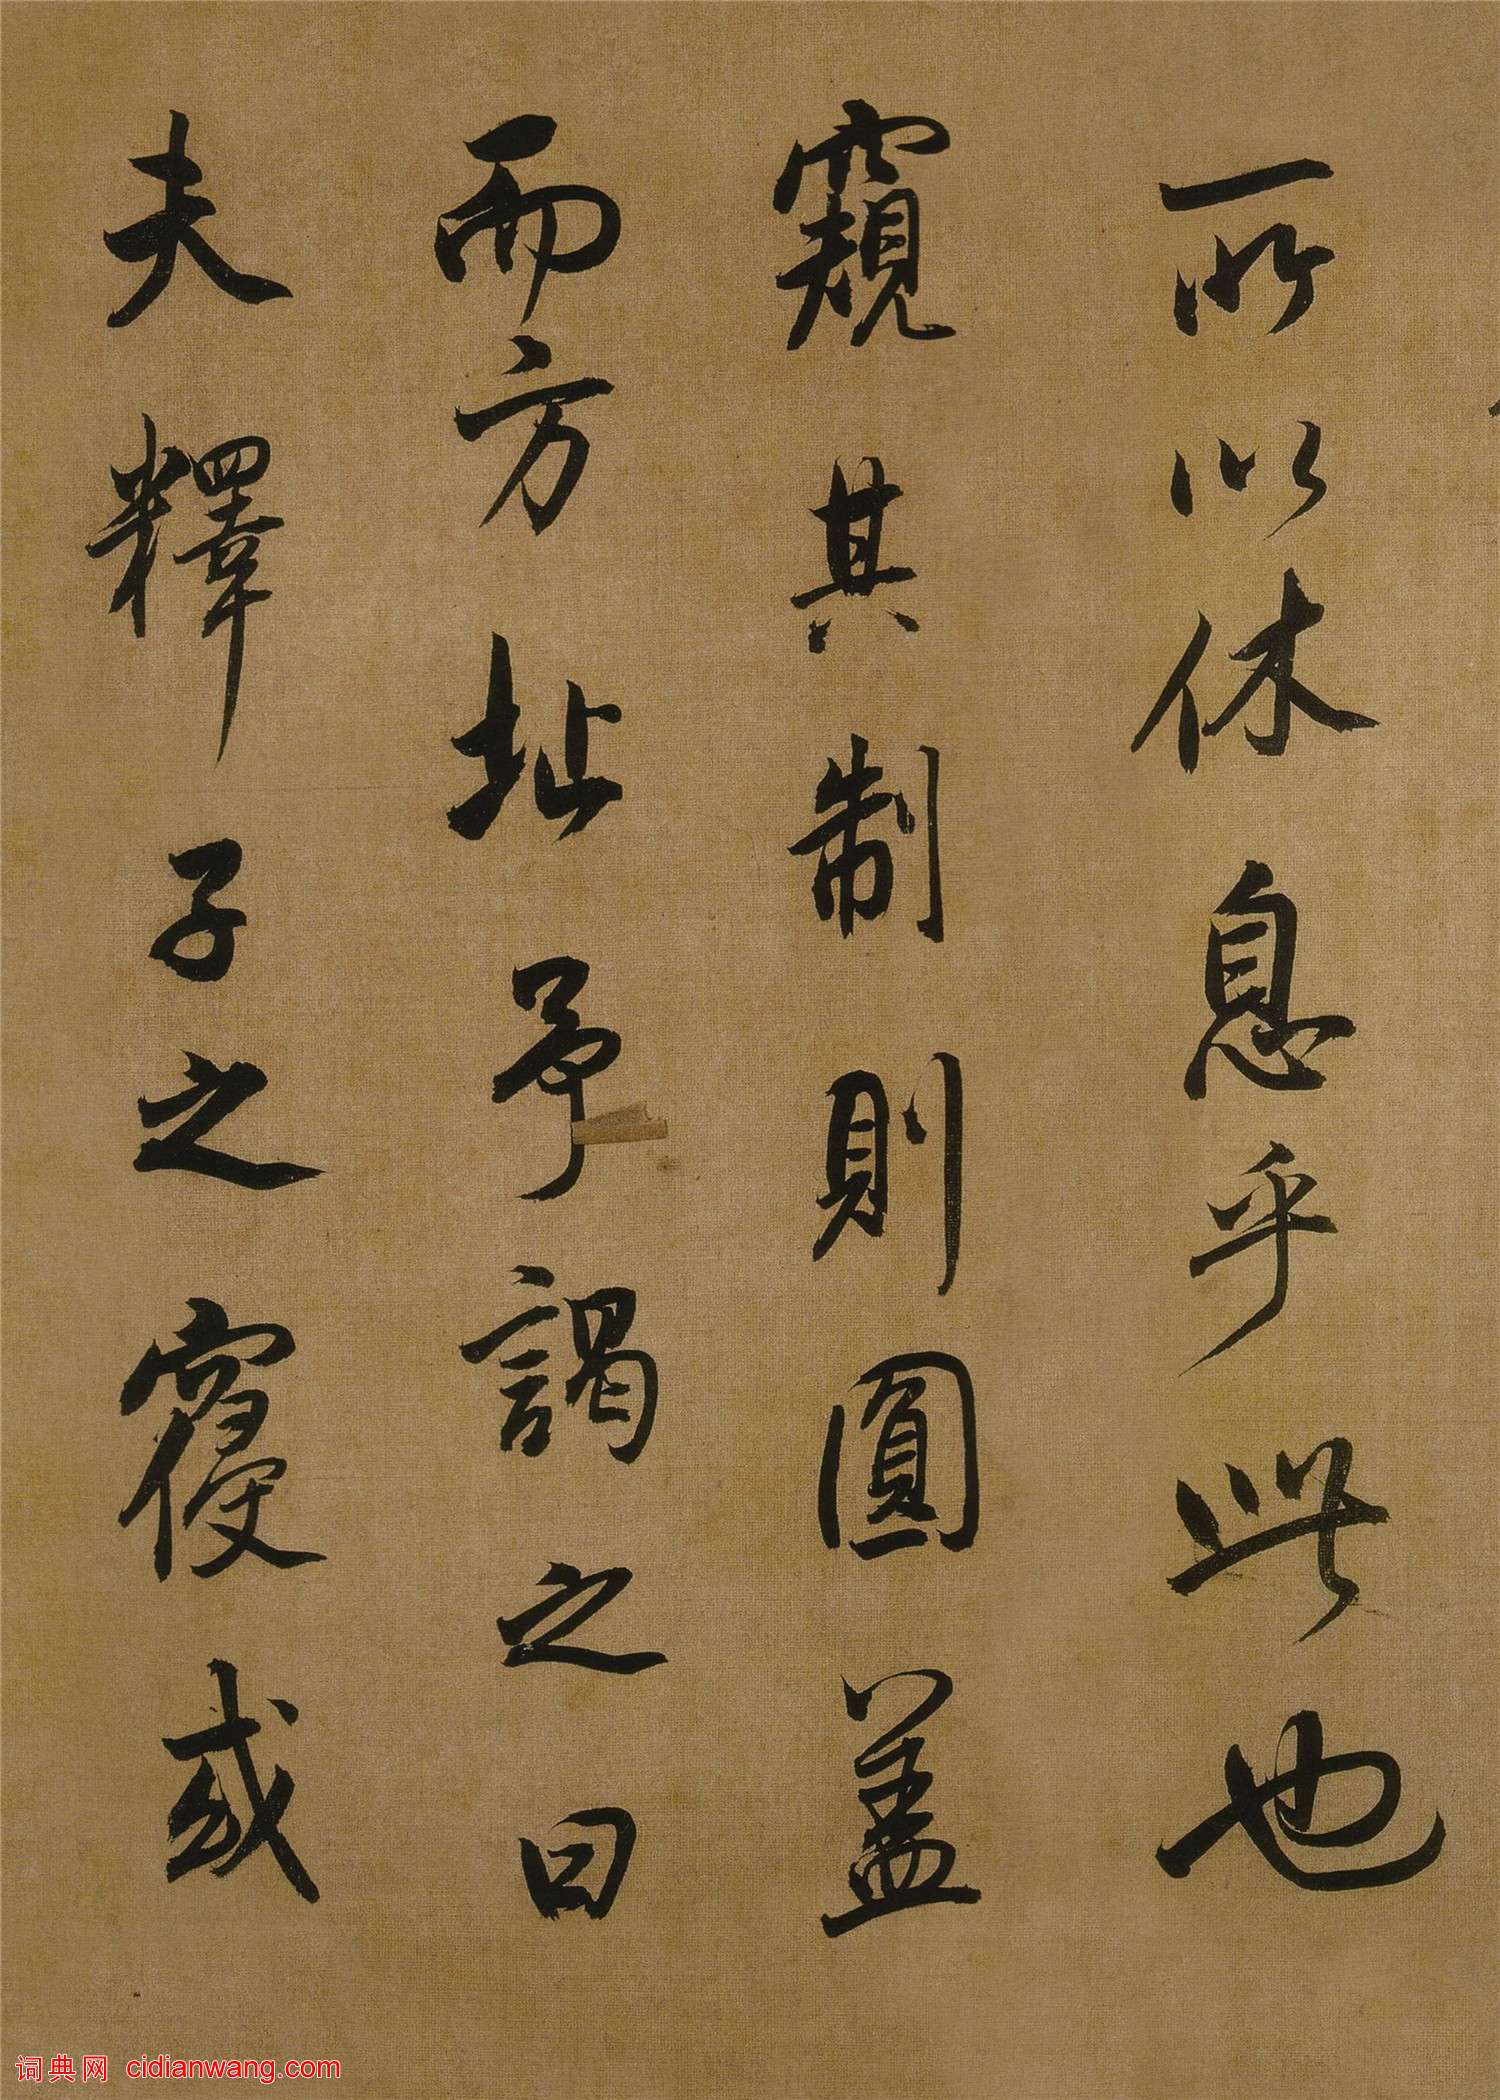 所以休息乎此也
窺其制則圓蓋
而方址予謁之曰
夫釋子之寢或
词典网 cidianwang.com